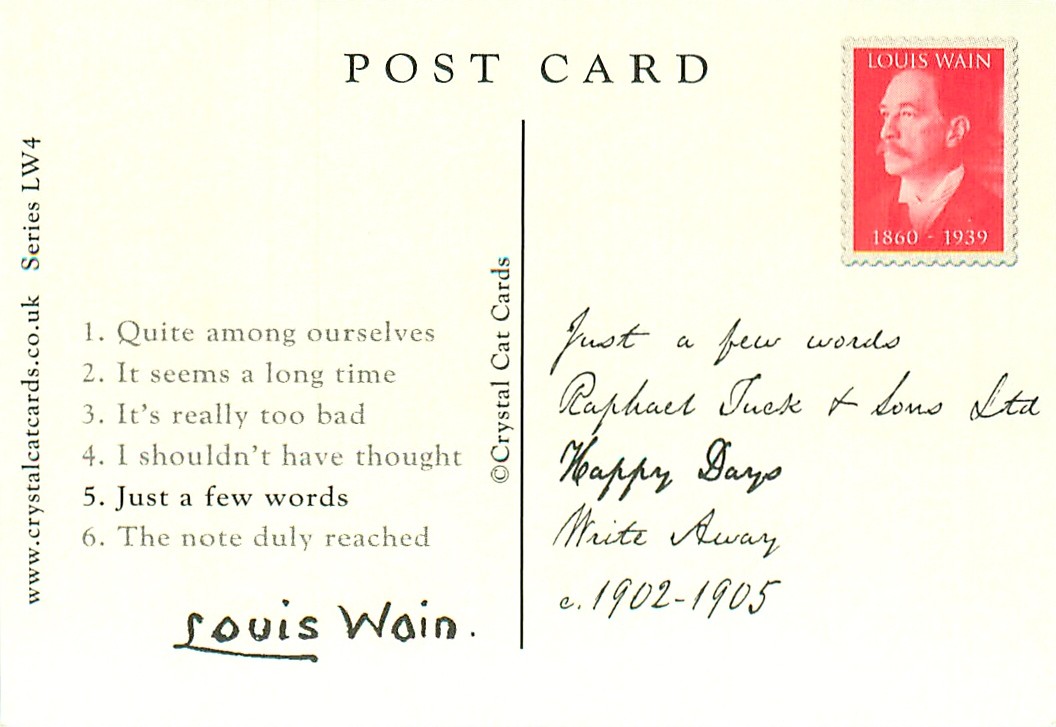 POST CARD
LOUIS WAIN
1860 - 1939
www.crystalcatcards.co.uk Series LW4
1. Quite among ourselves
2. It seems a long time
3. It's really too bad
4. I shouldn't have thought
5. Just a few words
6. The note duly reached
Louis Wain.
©Crystal Cat Cards
Just a few words
Raphael Tuck & Sons Ltd
Happy Days
Write Away
c.1902-1905